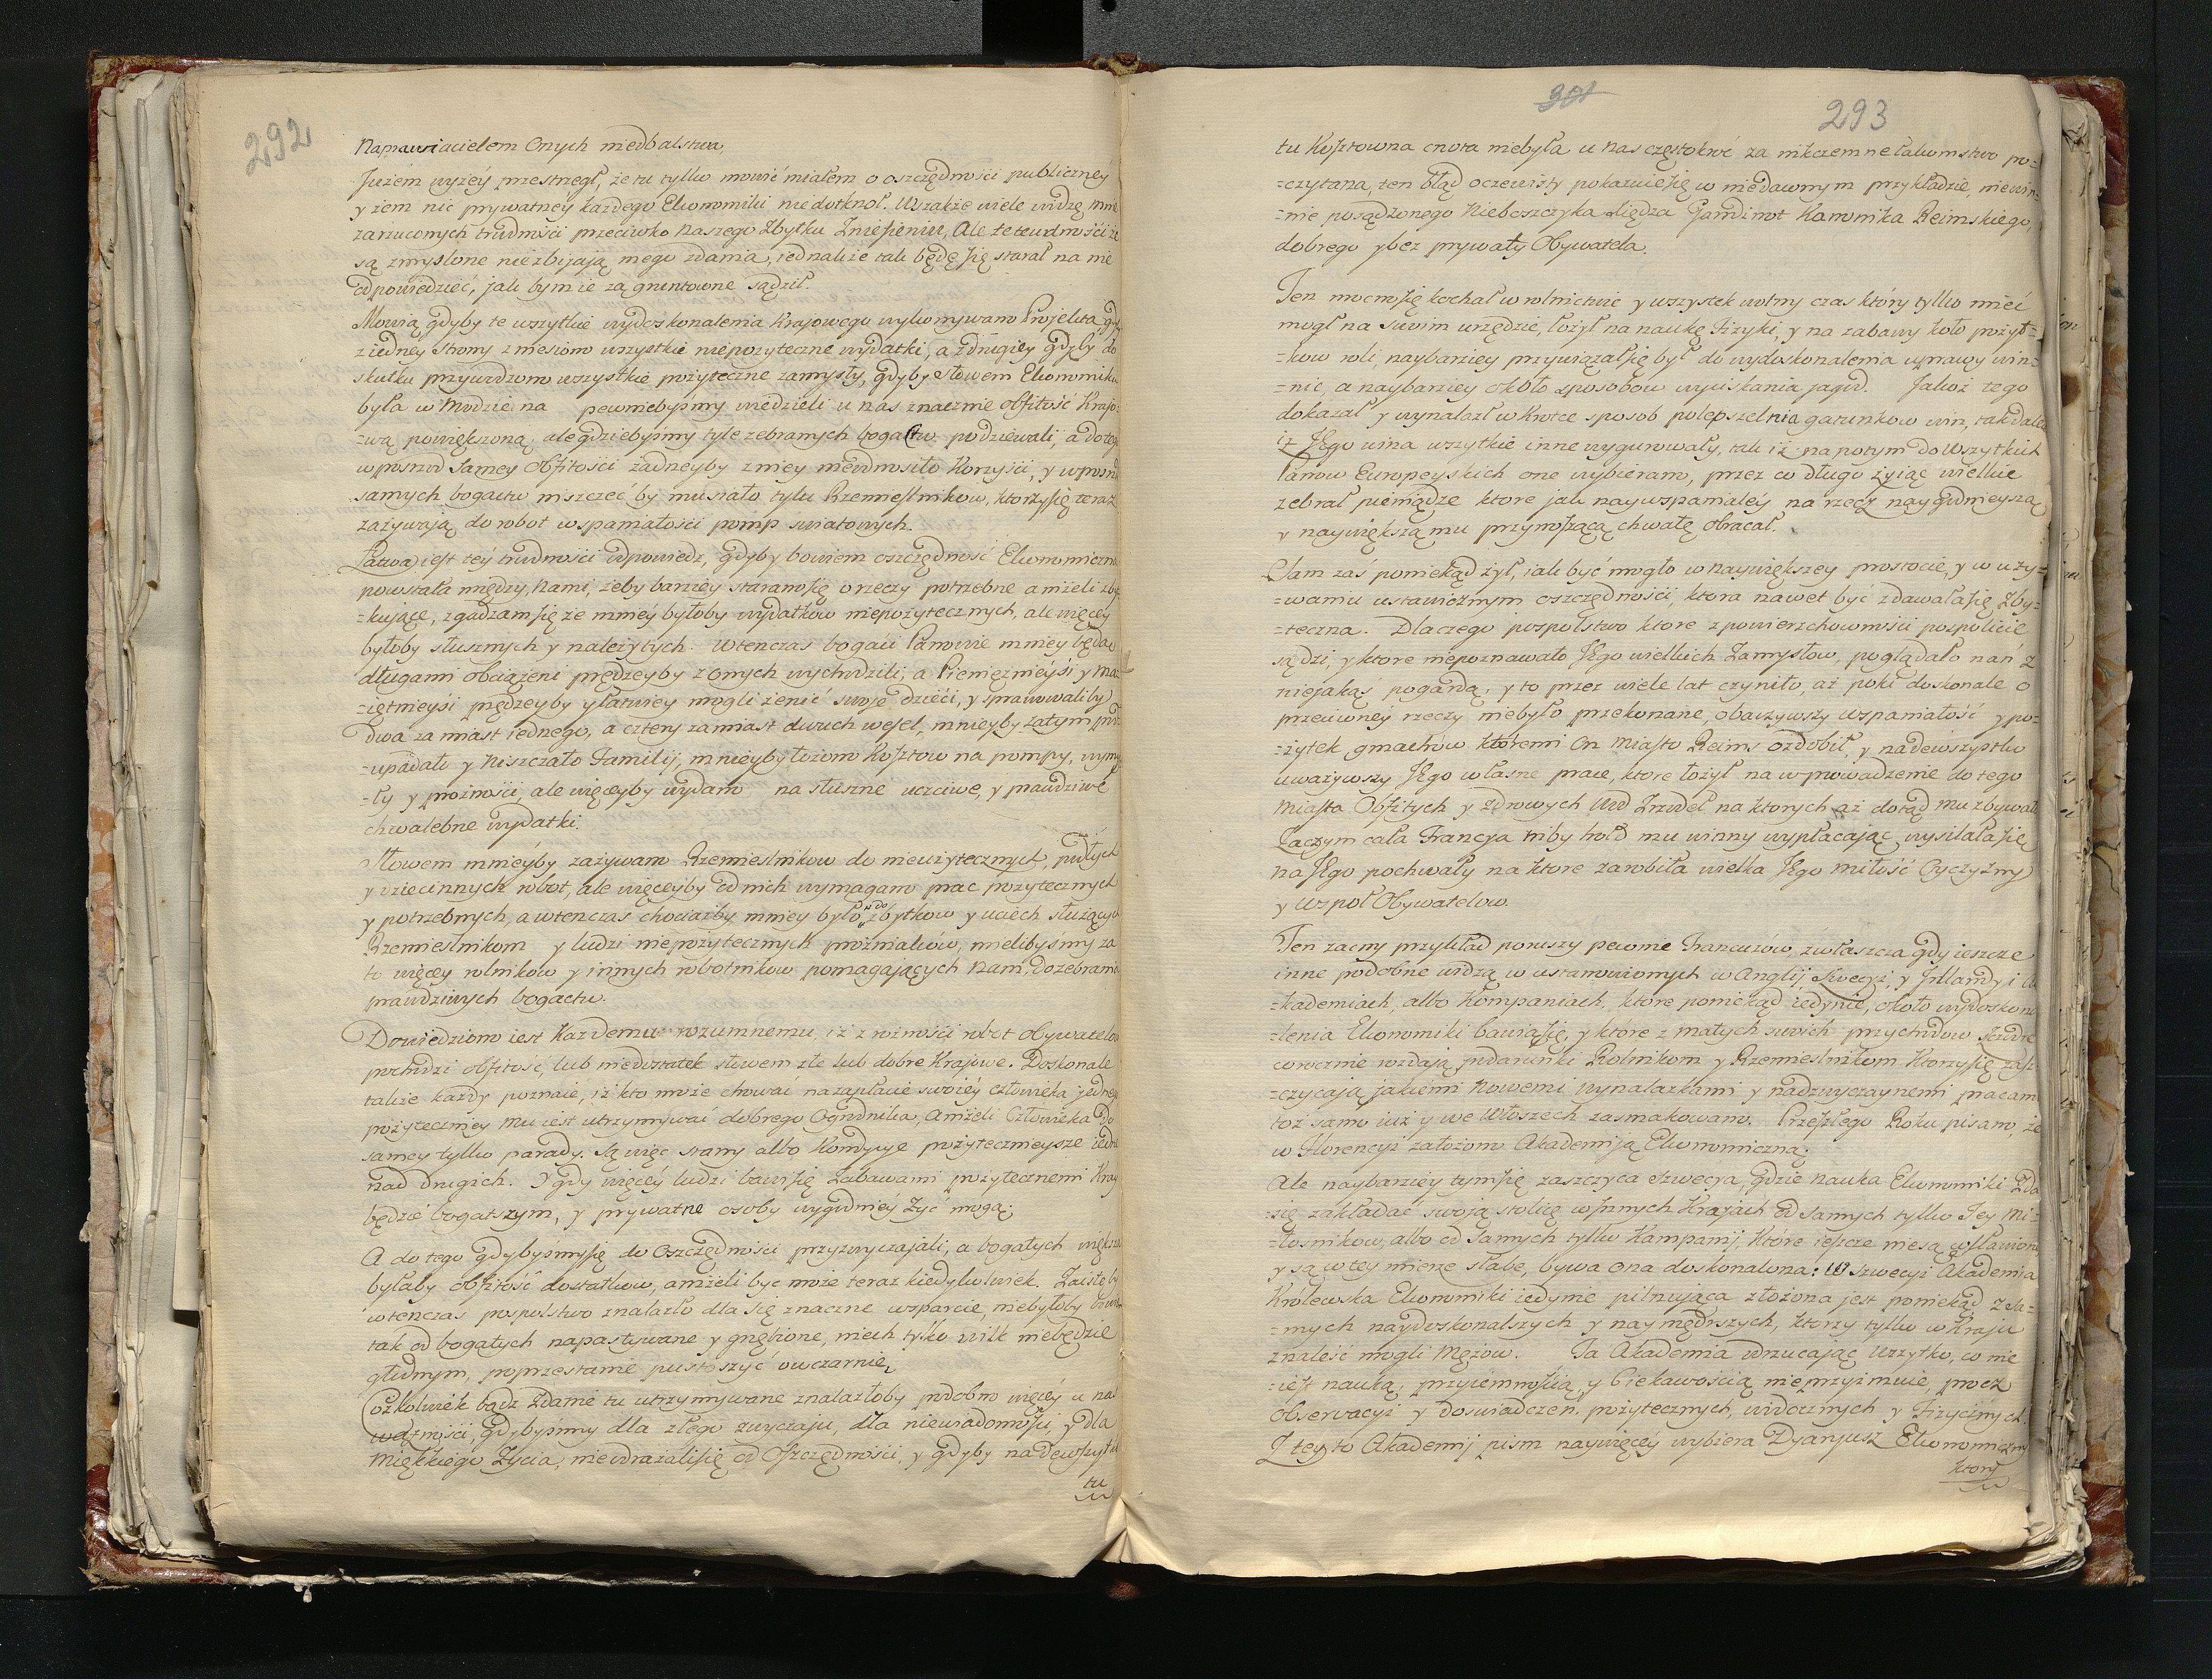 292
Naprawiacielem Onych niedbalstwa.
Jużem wyżéy przestrzegł, że tu tylko mowić miałem o oszczędności publicznéy
y żem nic prywatnéy każdego Ekonomiki niedotknoł. Wszakże wiele widzę mnie
zarzuconych trudności przeciwko naszego Zbytku Zniesieniu, Ale te trudności że
są zmyślone niezbijają mego zdania, iednakże tak będę się starał na nie
odpowiedzieć, jak bym ie za gruntowne sądził.
Mowią gdyby te wszytkie wydoskonalenia Krajowego wykonywano Projekta, gdy
z iedney Strony zniesiono wszystkie niepożyteczne wydatki, a z drugiéy gdyby do
skutku przywodzono wszystkie pożyteczne zamysły, gdyby słowem Ekonomika
była w modzie na pewniebyśmy wiedzieli u nas znacznie obfitość Krajo=
=wą powiększoną, ale gdziebyśmy tyle zebranych bogactw podziewali, a do tego
wposrzod samey obfitości żadneyby z niey nieodnosiło Korzyści, y wposrzod
samych bogactw niszczeć by musiało tylu Rzemieslnikow, ktorzy się teraz
zażywają do robot wspaniałości pomp światowych.
Łatwa iest tey trudności odpowiedz, gdyby bowiem oszczędność Ekonomiczna
powstała między Nami, żeby barziey starano się o rzeczy potrzebne aniżeli zby=
=kujące, zgadzam się że mniéy byłoby wydatków niepożytecznych, ale więcéy
byłoby słusznych y należytych. Wtenczas bogaci Panowie mniéy będąc
długami obciążeni prędzeyby z onych wychodzili, a Pieniężnieysi y Maję=
=iętnieysi prędzeyby y łatwiéy mogli żenić swoje dzieci, y sprawowaliby
dwa zamiast iednego, a cztery zamiast dwuch wesel, mnieyby zatym
=upadało y Niszczało Familij, mnieyby łożono Kosztow na pompy, wymy=
=sły y prożności, ale więceyby wydano na słuszne uczciwe, y prawdziwie
chwalebne wydatki.
Słowem mniéyby zażywano Rzemieslnikow do nieużytecznych, podłych
y dziecinnych robot, ale więcéyby od nich wymagano prac pożytecznych
y potrzebnych, a wtenczas chociażby mniey było do zbytkow y uciech służących
Rzemieslnikom y ludzi niepożytecznych prożniaków, mielibyśmy za
to więcéy rolnikow y innych robotnikow pomagających Nam, do zebrania
prawdziwych bogactw.
Dowiedziono iest Każdemu rozumnemu, iż z rożności robot Obywatelow
pochodzi obfitość, lub niedostatek słowem złe lub dobre Krajowe. Doskonale
także każdy poznaie, iż kto może chować na zapłacie swoiéy człowieka jednego
pożyteczniéy mu iest utrzymywać dobrego Ogrodnika, Aniżeli Człowieka do
samey tylko parady. Są więc stany albo Kondycye pożytecznieysze iedne
nad drugich. Y gdy więcéy ludzi bawi się Zabawami pożytecznemi Kray
będzie bogatszym, y prywatne osoby wygodniéy Żyć mogą.
A do tego gdybyśmy się do Oszczędności przyzwyczajali, a bogatych większa
byłaby obfitość dostatkow, aniżeli być może teraz kiedykolwiek. Zaisteby
wtenczas pospolstwo znalazło dla się znaczne wsparcie, niebyłoby bowiem
tak od bogatych napastowane y gnębione, niech tylko wilk niebędzie
głodnym, poprzestanie pustoszyć owczarnie.
Cożkolwiek bądz Zdanie tu utrzymywane znalazłoby podobno więcéy u nas
wdzności, gdybyśmy dla złego zwyczaju, dla niewiadomości, y dla
miękkiego Życia, nieodrażali się od Oszczędności, y gdyby nadewszystko
tu
301
293
tu Kosztowna cnota niebyła u nas częstokroć za nikczemne łakomstwo po=
=czytana, ten błąd oczewisty pokazuie się w niedawnym przykładzie, niewin=
=nie posądzonego Nieboszczyka Xiędza Gardinot Kanonika Reimskiego,
dobrego y bez prywaty Obywatela.
Ten mocno się kochał w rolnictwie y wszystek wolny czas który tylko mieć
mogł na swoim urzędzie, łożył na naukę Fizyki, y na zabawy koło pożyt=
=kow roli, naybarziey przywiązał się był do wydoskonalenia uprawy win=
=nic, a naybarziey około sposobow wyciskania jagod. Jakoż tego
dokazał y wynalazł w Krotce sposob polepszelnia gatunkow win, tak dalece
iż Jego wina wszytkie inne wygurowały, tak iż na potym do Wszytkich
Panow Europeyskich one wybierano, przez co długo żyiąc wielkie
zebrał pieniądze ktore jak nayuspanialéy na rzecz naygodnieyszą
y naywiększą mu przynoszącą chwałę obracał.
Sam zaś poniekąd żył, iak być mogło w naywiększey prostocie, y w uży=
=waniu ustawicznym oszczędności, ktora nawet być zdawała się Zby=
=teczna. Dlaczego pospolstwo ktore z powierzchowności pospolicie
sądzi, y ktore niepoznawało Jego wielkich Zamysłow, poglądało nań z
niejakąś pogardą, y to przez wiele lat czyniło, aż poki doskonale o
przeciwnéy rzeczy niebyło przekonane, obaczywszy wspaniałość y po=
=żytek gmachów któremi On Miasto Reims ozdobił, y nadewszystko
uważywszy Jego własne prace, ktore łożył na wprowadzenie do tego
Miasta Obfitych y zdrowych Wod Zrzodeł na ktorych aż dotąd mu zbywało
Zaczym cała Francya niby hołd mu winny wypłacając wysilała się
na Jego pochwały na ktore zarobiła wielka Jego miłość Oyczyzny
y Wspoł Obywatelow.
Ten zacny przykład poruszy pewnie Francuzów, zwłaszcza gdy ieszcze
inne podobne widzą w ustanowionych w Anglij, Szwecyi, y Jrllandyi A=
=kademiach, albo Kompaniach, ktore poniekąd iedynie, około wydoskona=
=lenia Ekonomiki bawią się, y które z małych swoich przychodow
corocznie rozdają podarunki Rolnikom y Rzemieslnikom ktorzy się zasz=
=czycają jakiemi Nowemi wynalazkami y nadzwyczaynemi pracami
toż samo iuż y we Włoszech zasmakowano. Przeszłego Roku pisano, że
w Florencyi założono Akademiją Ekonomiczną.
Ale naybarziey tym się zaszczyca Szwecya, gdzie nauka Ekonomiki zda
się zakładać swoją stolicę w Jnnych Krajach od samych tylko Jey Mi=
=łosnikow, albo od samych tylko Kampanij, Które ieszcze niesą wsławione
y są w tey mierze słabe, bywa ona doskonalona: W Szwecyi Akademia
Królewska Ekonomiki iedynie pilnująca złożona jest poniekąd z sa=
=mych naydoskonalszych y naymędrszych, ktorzy tylko w Kraju
znaleść mogli Mężow. Ta Akademia odrzucając Wszytko, co nie
iest nauką, przyiemnością y Ciekawością nieprzyimuie, procz
Observacyi y doswiadczen. pożytecznych, widocznych y Fizycznych.
Z tey to Akademij pism naywięcéy wybiera Dyaryusz Ekonomiczny
ktory